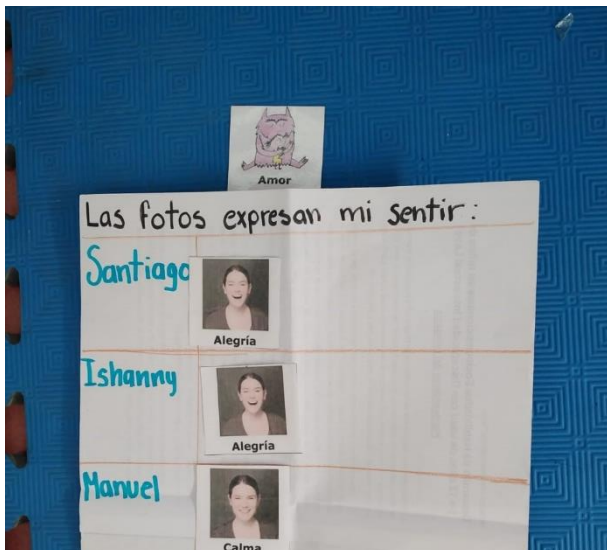 Amor
Las fotos expresan mi sentir:
Santiago
Alegría
Ishanny
Alegría
Manuel
Calma